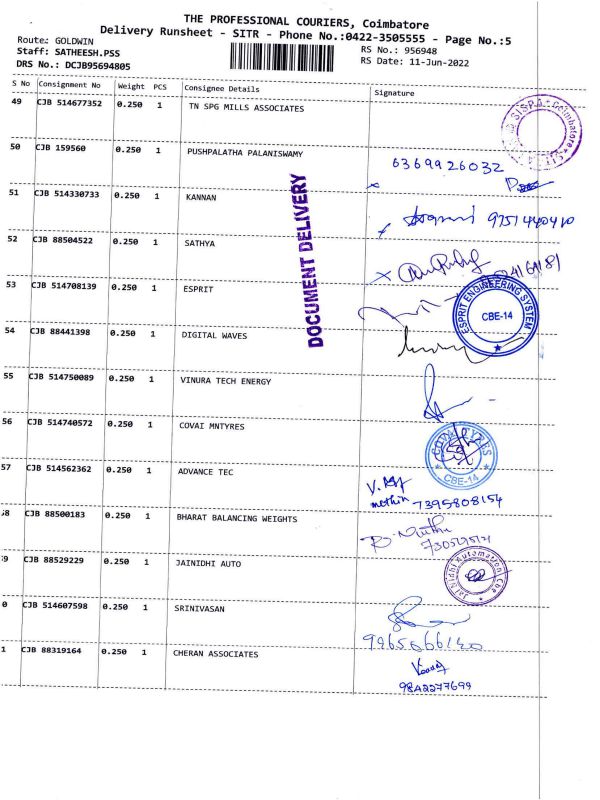 THE PROFESSIONAL COURIERS, Coimbatore
Delivery Runsheet - SITR - Phone No.:0422-3505555 - Page No.:5
Route: GOLDWIN
RS No.: 956948
Staff: SATHEESH.PSS
RS Date: 11-Jun-2022
DRS No.: DCJB95694805
S No Consignment No Weight PCS Consignee Details Signature
49 CJB 514677352 0.250 1 TN SPG MILLS ASSOCIATES
SISPA Coimbatore
50 CJB 159560 0.250 1 PUSHPALATHA PALANISWAMY
6369926032
51 CJB 514330733 0.250 1 KANNAN
9751440410
52 CJB 88504522 0.250 1 SATHYA
DOCUMENT DELIVERY
53 CJB 514708139 0.250 1 ESPRIT
ESPRIT ENGINEERING SYSTEM
CBE-14
54 CJB 88441398 0.250 1 DIGITAL WAVES
55 CJB 514750089 0.250 1 VINURA TECH ENERGY
56 CJB 514740572 0.250 1 COVAI MNTYRES
COVAI TYRES
CBE-14
57 CJB 514562362 0.250 1 ADVANCE TEC
methin 7395808154
58 CJB 88500183 0.250 1 BHARAT BALANCING WEIGHTS
9 CJB 88529229 0.250 1 JAINIDHI AUTO
Jai Nidhi Automation Cbe
0 CJB 514607598 0.250 1 SRINIVASAN
9965066140
1 CJB 88319164 0.250 1 CHERAN ASSOCIATES
9842277699